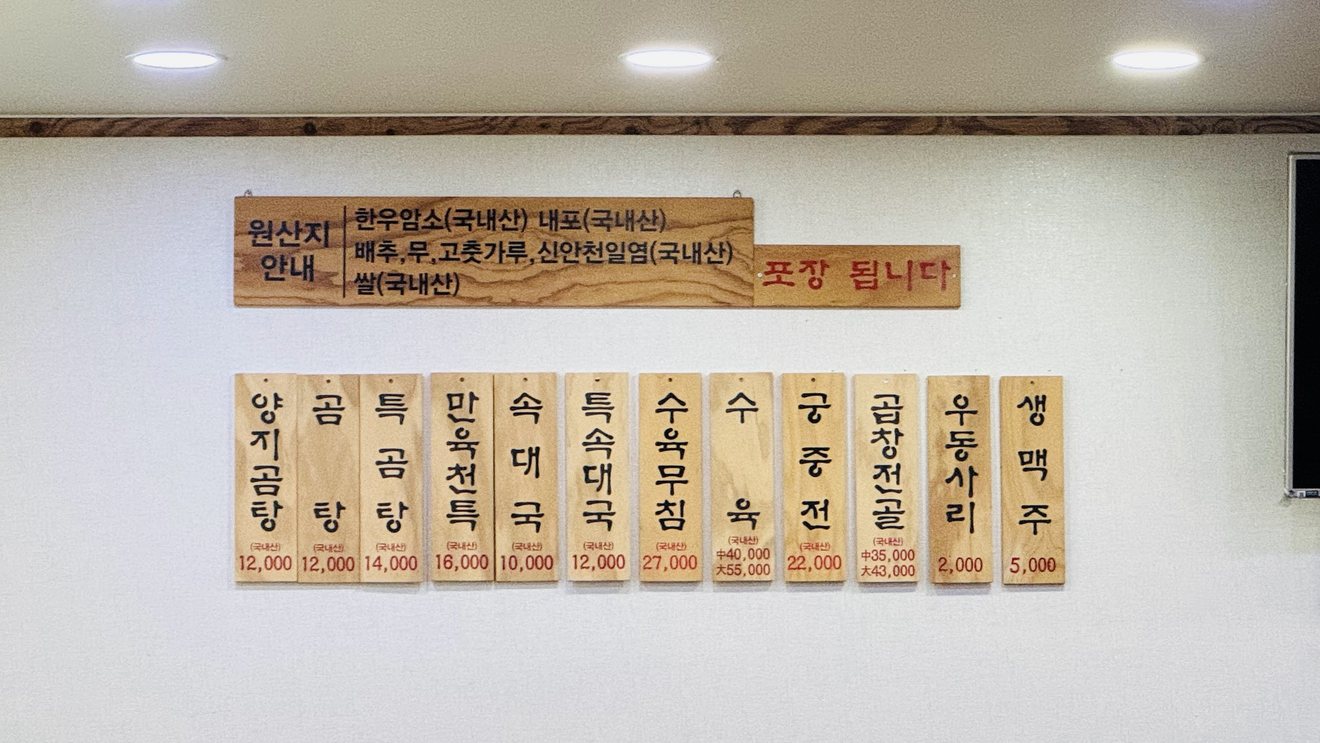 원산지
안내
한우암소(국내산) 내포(국내산)
배추,무,고춧가루,신안천일염(국내산)
쌀(국내산)
포장 됩니다
양지곰탕
(국내산)
12,000
곰탕
(국내산)
12,000
특곰탕
(국내산)
14,000
만육천특
(국내산)
16,000
속대국
(국내산)
10,000
특속대국
(국내산)
12,000
수육무침
(국내산)
27,000
수육
(국내산)
中40,000
大55,000
궁중전
(국내산)
22,000
곱창전골
(국내산)
中35,000
大43,000
우동사리
2,000
생맥주
5,000